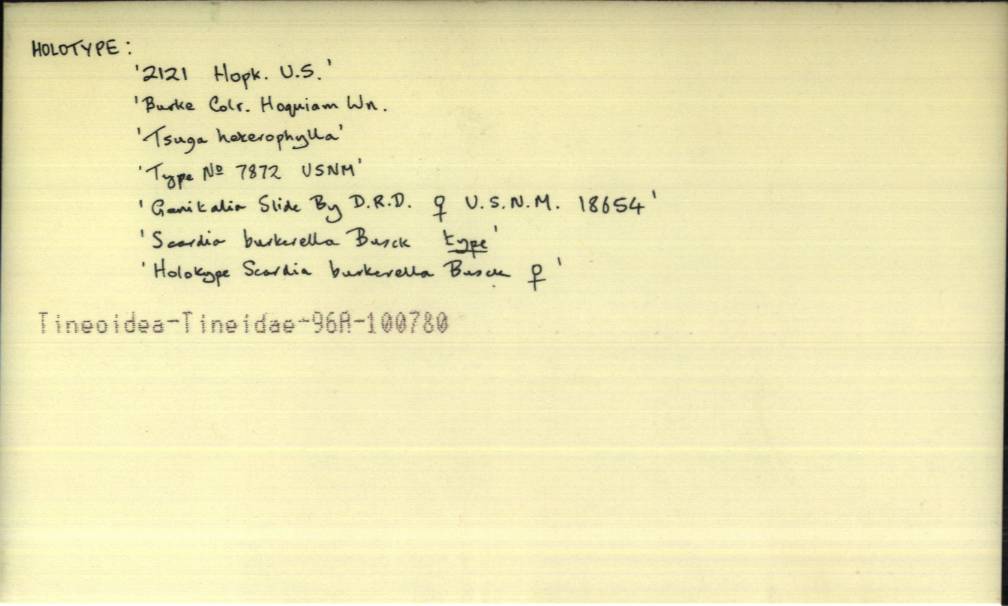 HOLOTYPE:
'2121 Hopk. U.S.'
'Burke Colr. Hoquiam Wn.
'Tsuga heterophylla'
'Type Nº 7872 USNM'
'Genitalia Slide By D.R.D. ♀ U.S.N.M. 18654'
'Scardia burkerella Busck type'
'Holotype Scardia burkerella Busck ♀'
Tineoidea-Tineidae-96A-100780